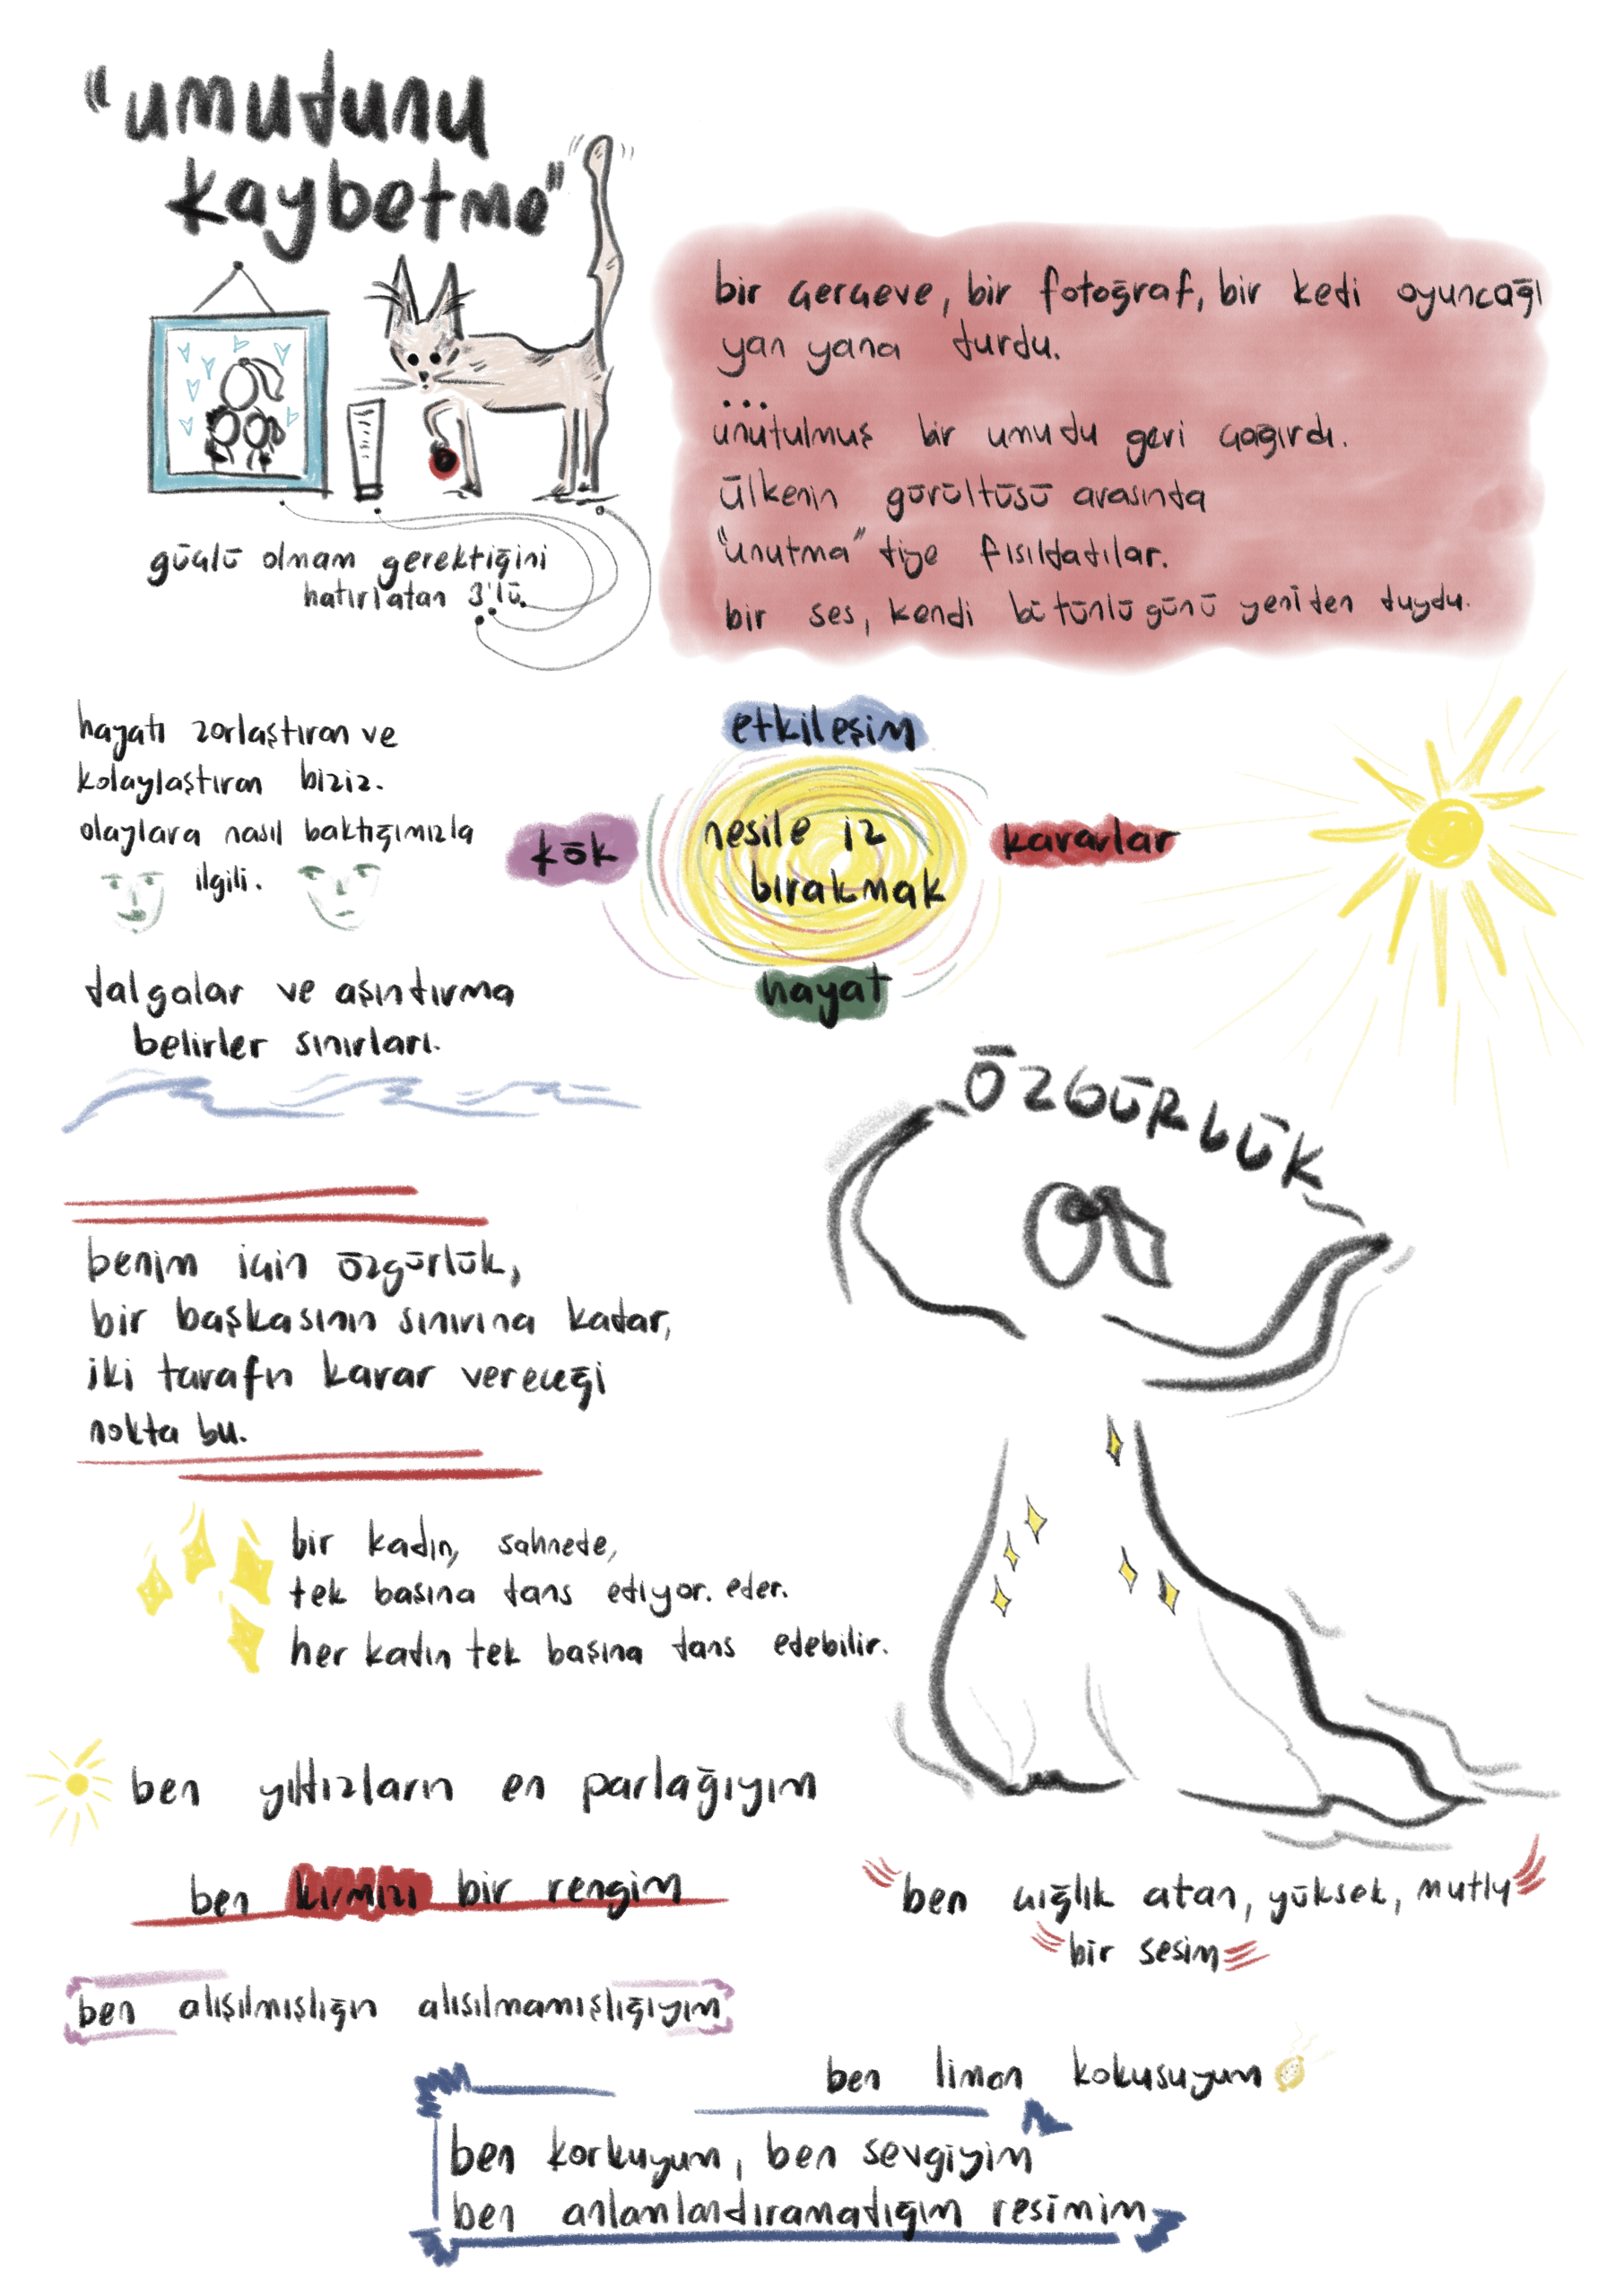 "umudunu
kaybetme"
güçlü olmam gerektiğini
hatırlatan 3'lü.
bir çerçeve, bir fotoğraf, bir kedi oyuncağı
yan yana durdu.
...
unutulmuş bir umudu geri çağırdı.
ülkenin gürültüsü arasında
"unutma" diye fısıldadılar.
bir ses, kendi bütünlüğünü yeniden duydu.
hayatı zorlaştıran ve
kolaylaştıran biziz.
olaylara nasıl baktığımızla
ilgili.
etkileşim
kök
nesile iz
bırakmak
kararlar
hayat
dalgalar ve aşındırma
belirler sınırları.
ÖZGÜRLÜK
benim için özgürlük,
bir başkasının sınırına kadar,
iki tarafın karar vereceği
nokta bu.
bir kadın, sahnede,
tek basına dans ediyor. eder.
her kadın tek başına dans edebilir.
ben yıldızların en parlağıyım
ben kırmızı bir rengim
ben çığlık atan, yüksek, mutlu
bir sesim
ben alışılmışlığın alısılmamışlığıyım
ben limon kokusuyum
ben korkuyum, ben sevgiyim
ben anlamlandıramadığım resimim